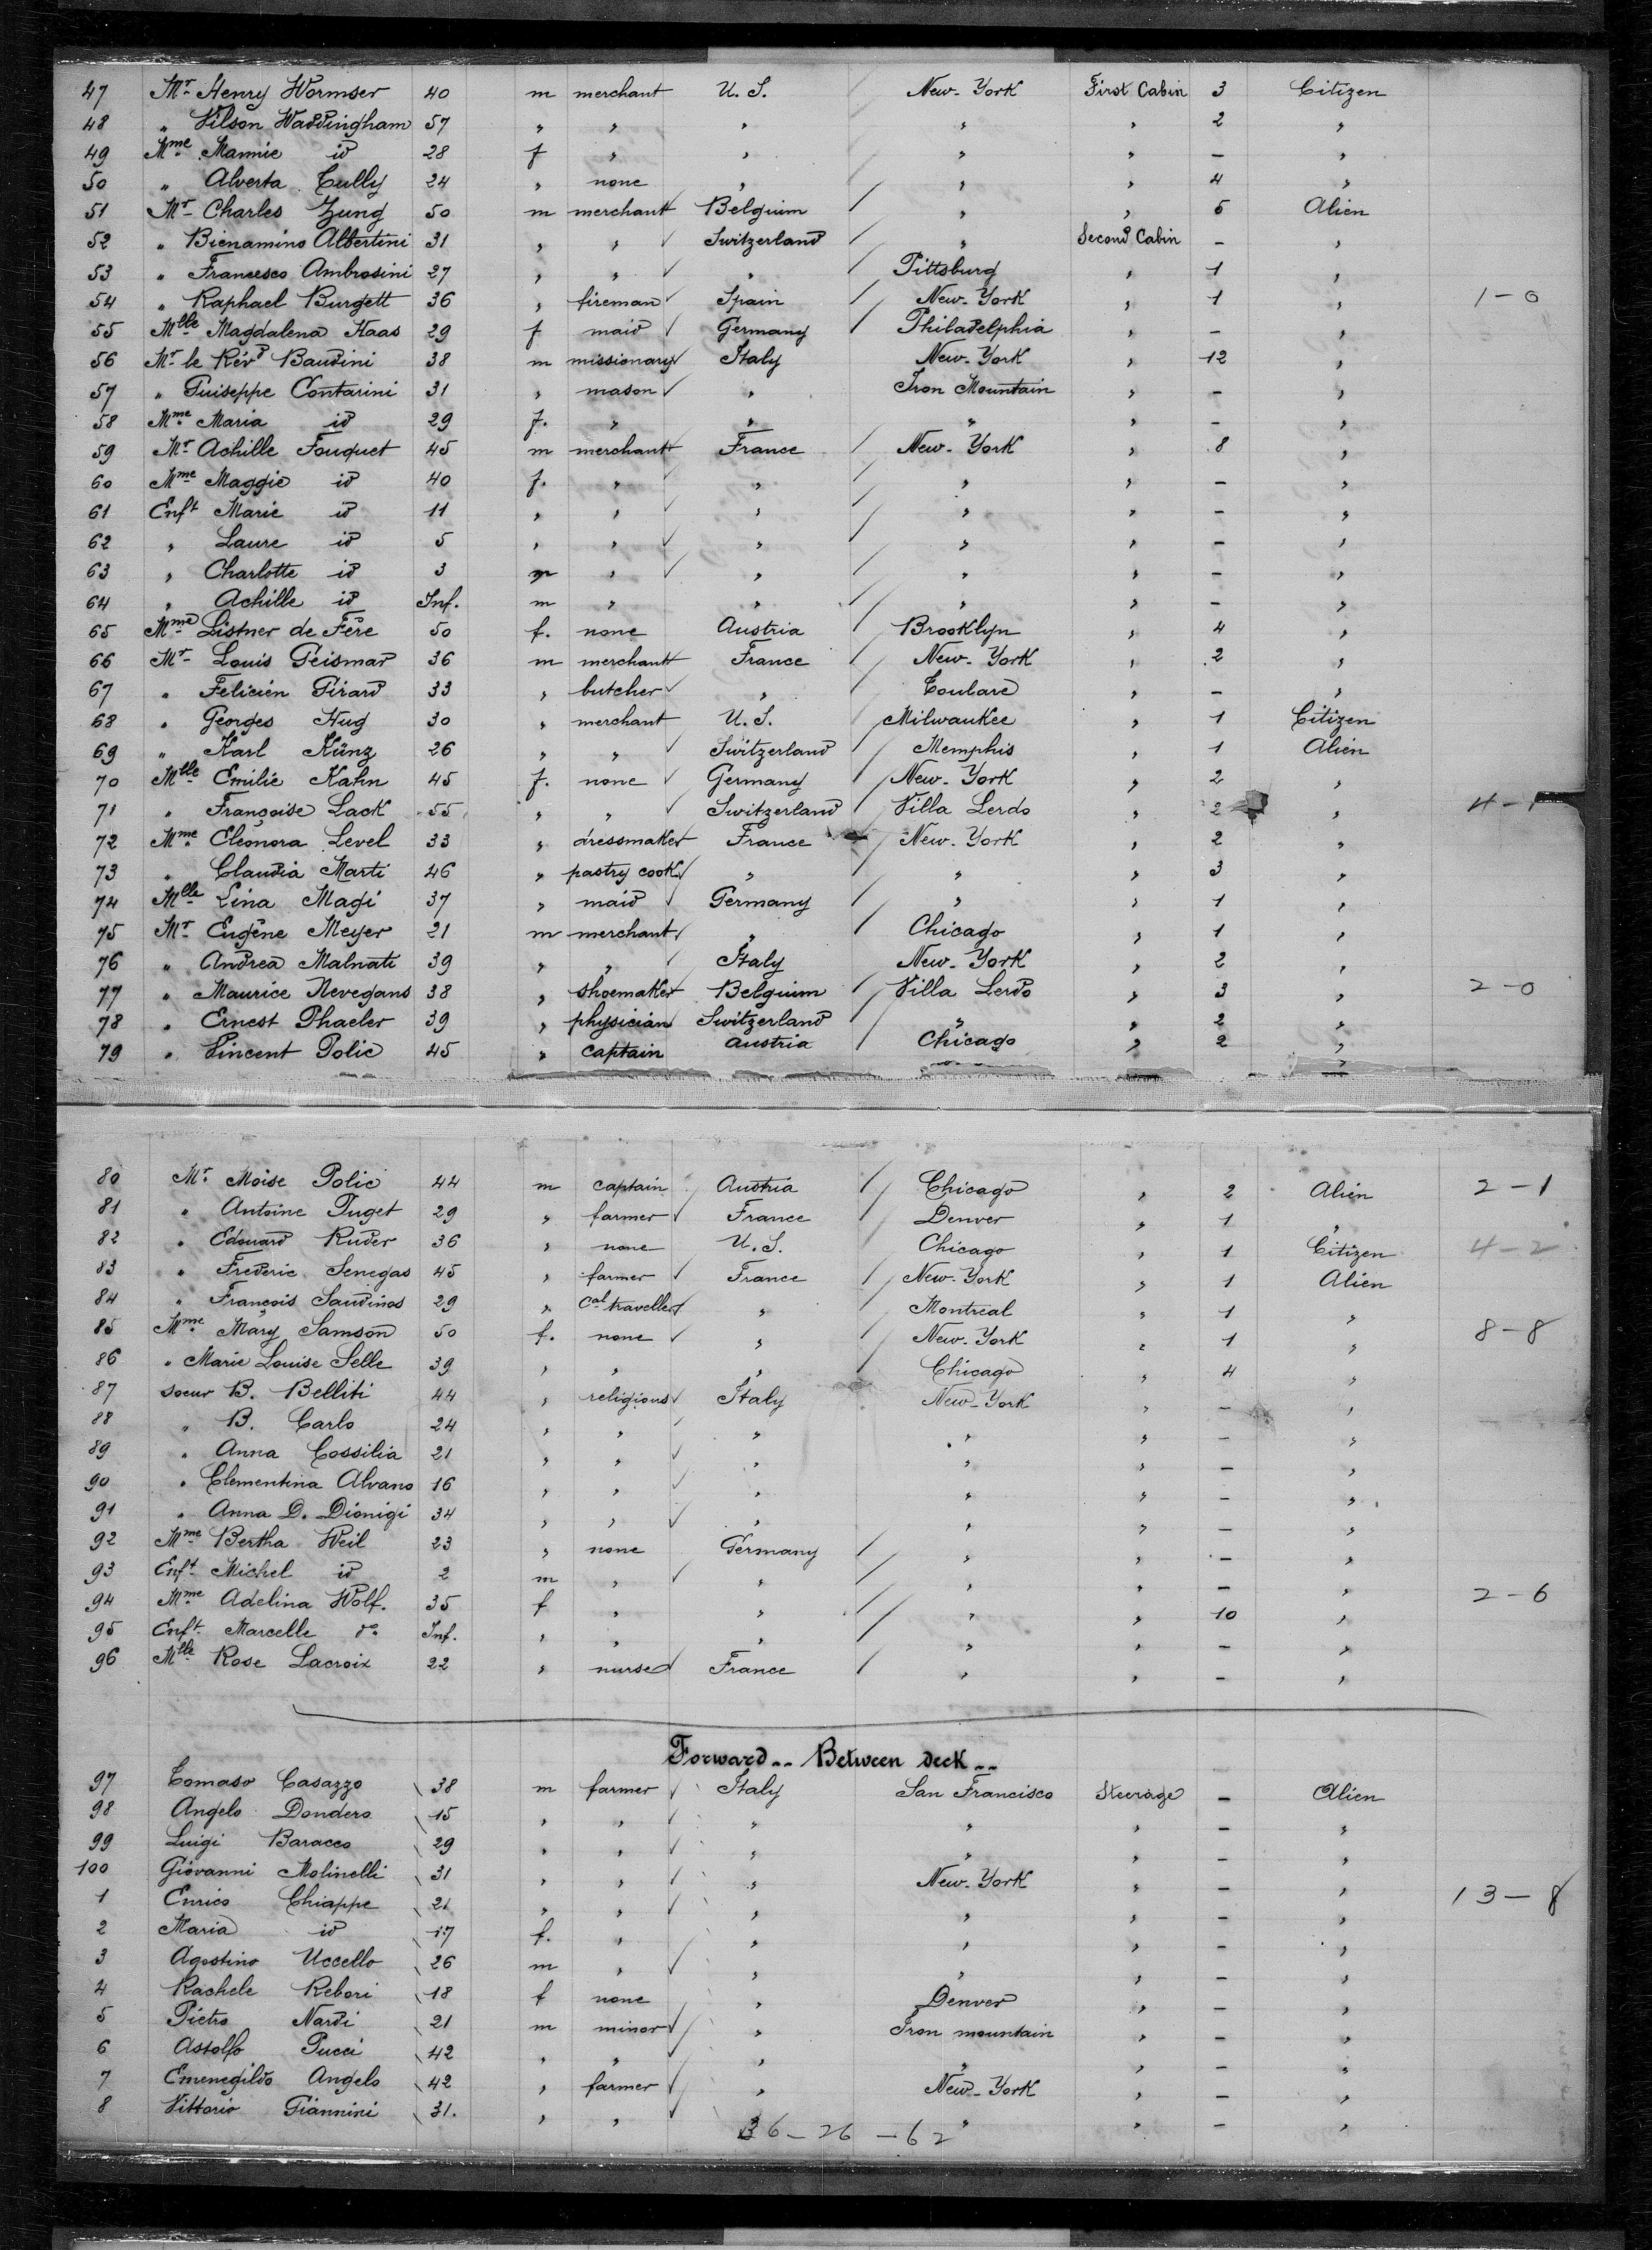 47 Mr. Henry Wormser 40 m merchant U.S. New-York First Cabin 3 Citizen
48 " Vilson Waddingham 57 " " " " " 2 "
49 Mme. Mannie id 28 f " " " " - "
50 " Alverta Cully 24 " none " " " 4 "
51 Mr. Charles Zung 50 m merchant Belguim / " " 5 Alien
52 " Bienamino Albertini 31 " " Switzerland / " Second Cabin - "
53 " Francesco Ambrosini 27 " " " / Pittsburg " 1 "
54 " Raphael Burgett 36 " fireman Spain / New-York " 1 " 1-0
55 Mlle Magdalena Haas 29 f maid Germany / Philadelphia " - "
56 Mr. le Révd Baudini 38 m missionary Italy New-York " 12 "
57 " Guiseppe Contarini 31 " mason " Iron Mountain " - "
58 Mme. Maria id 29 f. " " " " - "
59 Mr. Achille Fouquet 45 m merchant France / New-York " 8 "
60 Mme. Maggie id 40 f. " " / " " - "
61 Enft Marie id 11 " " " / " " - "
62 " Laure id 5 " " " / " " - "
63 " Charlotte id 3 m " " / " " - "
64 " Achille id Inf. m " " / " " - "
65 Mme. Listner de Fère 50 f. none Austria / Brooklyn " 4 "
66 Mr. Louis Geismar 36 m merchant France / New-York " 2 "
67 " Felicien Girard 33 " butcher " / Toulare " - "
68 " Georges Hug 30 " merchant U.S. Milwaukee " 1 Citizen
69 " Karl Künz 26 " " Switzerland / Memphis " 1 Alien
70 Mlle Emilie Kahn 45 f. none Germany / New-York " 2 "
71 " Françoise Lack 55 " " Switzerland / Villa Lerdo " 2 " 4-1
72 Mme. Eleonora Level 33 " dressmaker France / New-York " 2 "
73 " Claudia Marti 46 " pastry cook " / " " 3 "
74 Mlle Lina Magi 37 " maid Germany / " " 1 "
75 Mr. Eugène Meyer 21 m merchant " / Chicago " 1 "
76 " Andrea Malnati 39 " " Italy New-York " 2 "
77 " Maurice Nevegans 38 " shoemaker Belguim / Villa Lerdo " 3 " 2-0
78 " Ernest Phaeler 39 " physician Switzerland / " " 2 "
79 " Vincent Polic 45 " captain Austria / Chicago " 2 "
80 Mr. Moise Polic 44 m captain Austria / Chicago " 2 Alien 2-1
81 " Antoine Puget 29 " farmer France / Denver " 1 "
82 " Edouard Ruder 36 " none U.S. Chicago " 1 Citizen 4-2
83 " Frederic Senegas 45 " farmer France / New-York " 1 Alien
84 " François Saudinos 29 " Cal traveller " / Montreal " 1 "
85 Mme. Mary Samson 50 f. none " / New-York " 1 " 8-8
86 " Marie Louise Selle 39 " " " / Chicago " 4 "
87 soeur B. Belliti 44 " religious Italy New-York " - "
88 " B. Carlo 24 " " " " " - "
89 " Anna Cossilia 21 " " " " " - "
90 " Clementina Alvano 16 " " " " " - "
91 " Anna D. Dionigi 34 " " " " " - "
92 Mme. Bertha Weil 23 " none Germany / " " - "
93 Enft Michel id 2 m " " / " " - "
94 Mme. Adelina Wolf. 35 f " " / " " 10 " 2-6
95 Enft. Marcelle do Inf. " " " / " " - "
96 Mlle Rose Lacroix 22 " nurse France / " " - "
Forward -- Between deck --
97 Tomaso Casazzo 38 m farmer Italy San Francisco Steerage - Alien
98 Angelo Dondero 15 " " " " " - "
99 Luigi Baracco 29 " " " " " - "
100 Giovanni Molinelli 31 " " " New-York " - "
1 Enrico Chiappe 21 " " " " " - " 13-8
2 Maria id 17 f. " " " " - "
3 Agostino Uccello 26 m " " " " - "
4 Rachele Rebori 18 f none " Denver " - "
5 Pietro Nardi 21 m minor " Iron mountain " - "
6 Astolfo Pucci 42 " " " " " - "
7 Emenegildo Angelo 42 " farmer " New-York " - "
8 Vittorio Giannini 31. " " " " - "
36-26-62